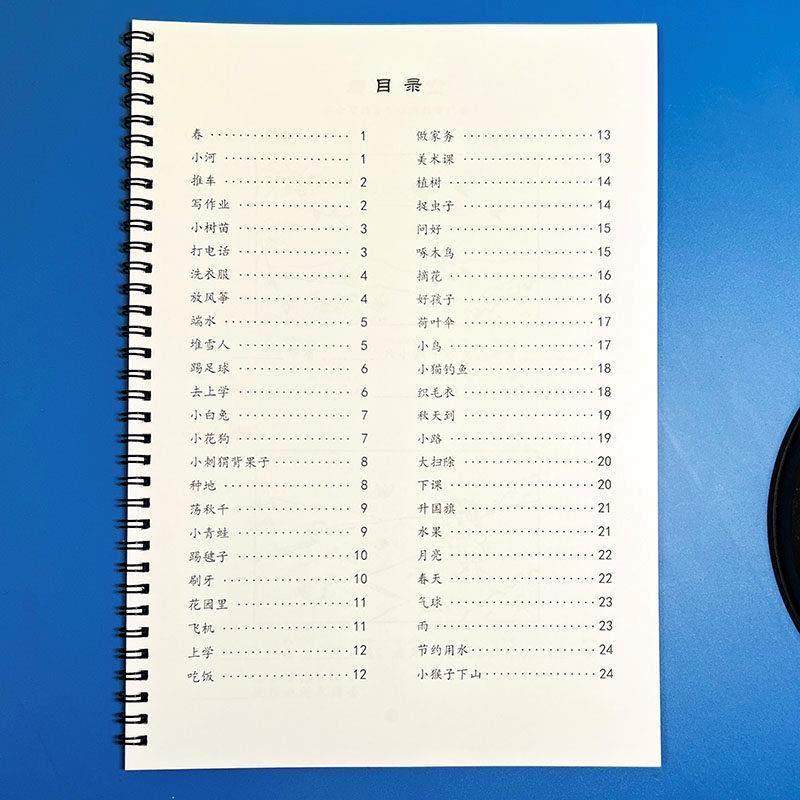 目录
春 ··················· 1
小河 ················· 1
推车 ················· 2
写作业 ··············· 2
小树苗 ··············· 3
打电话 ··············· 3
洗衣服 ··············· 4
放风筝 ··············· 4
端水 ················· 5
堆雪人 ··············· 5
踢足球 ··············· 6
去上学 ··············· 6
小白兔 ··············· 7
小花狗 ··············· 7
小刺猬背果子 ··········· 8
种地 ················· 8
荡秋千 ··············· 9
小青蛙 ··············· 9
踢毽子 ··············· 10
刷牙 ················· 10
花园里 ··············· 11
飞机 ················· 11
上学 ················· 12
吃饭 ················· 12
做家务 ··············· 13
美术课 ··············· 13
植树 ················· 14
捉虫子 ··············· 14
问好 ················· 15
啄木鸟 ··············· 15
摘花 ················· 16
好孩子 ··············· 16
荷叶伞 ··············· 17
小鸟 ················· 17
小猫钓鱼 ·············· 18
织毛衣 ··············· 18
秋天到 ··············· 19
小路 ················· 19
大扫除 ··············· 20
下课 ················· 20
升国旗 ··············· 21
水果 ················· 21
月亮 ················· 22
春天 ················· 22
气球 ················· 23
雨 ··················· 23
节约用水 ·············· 24
小猴子下山 ············ 24